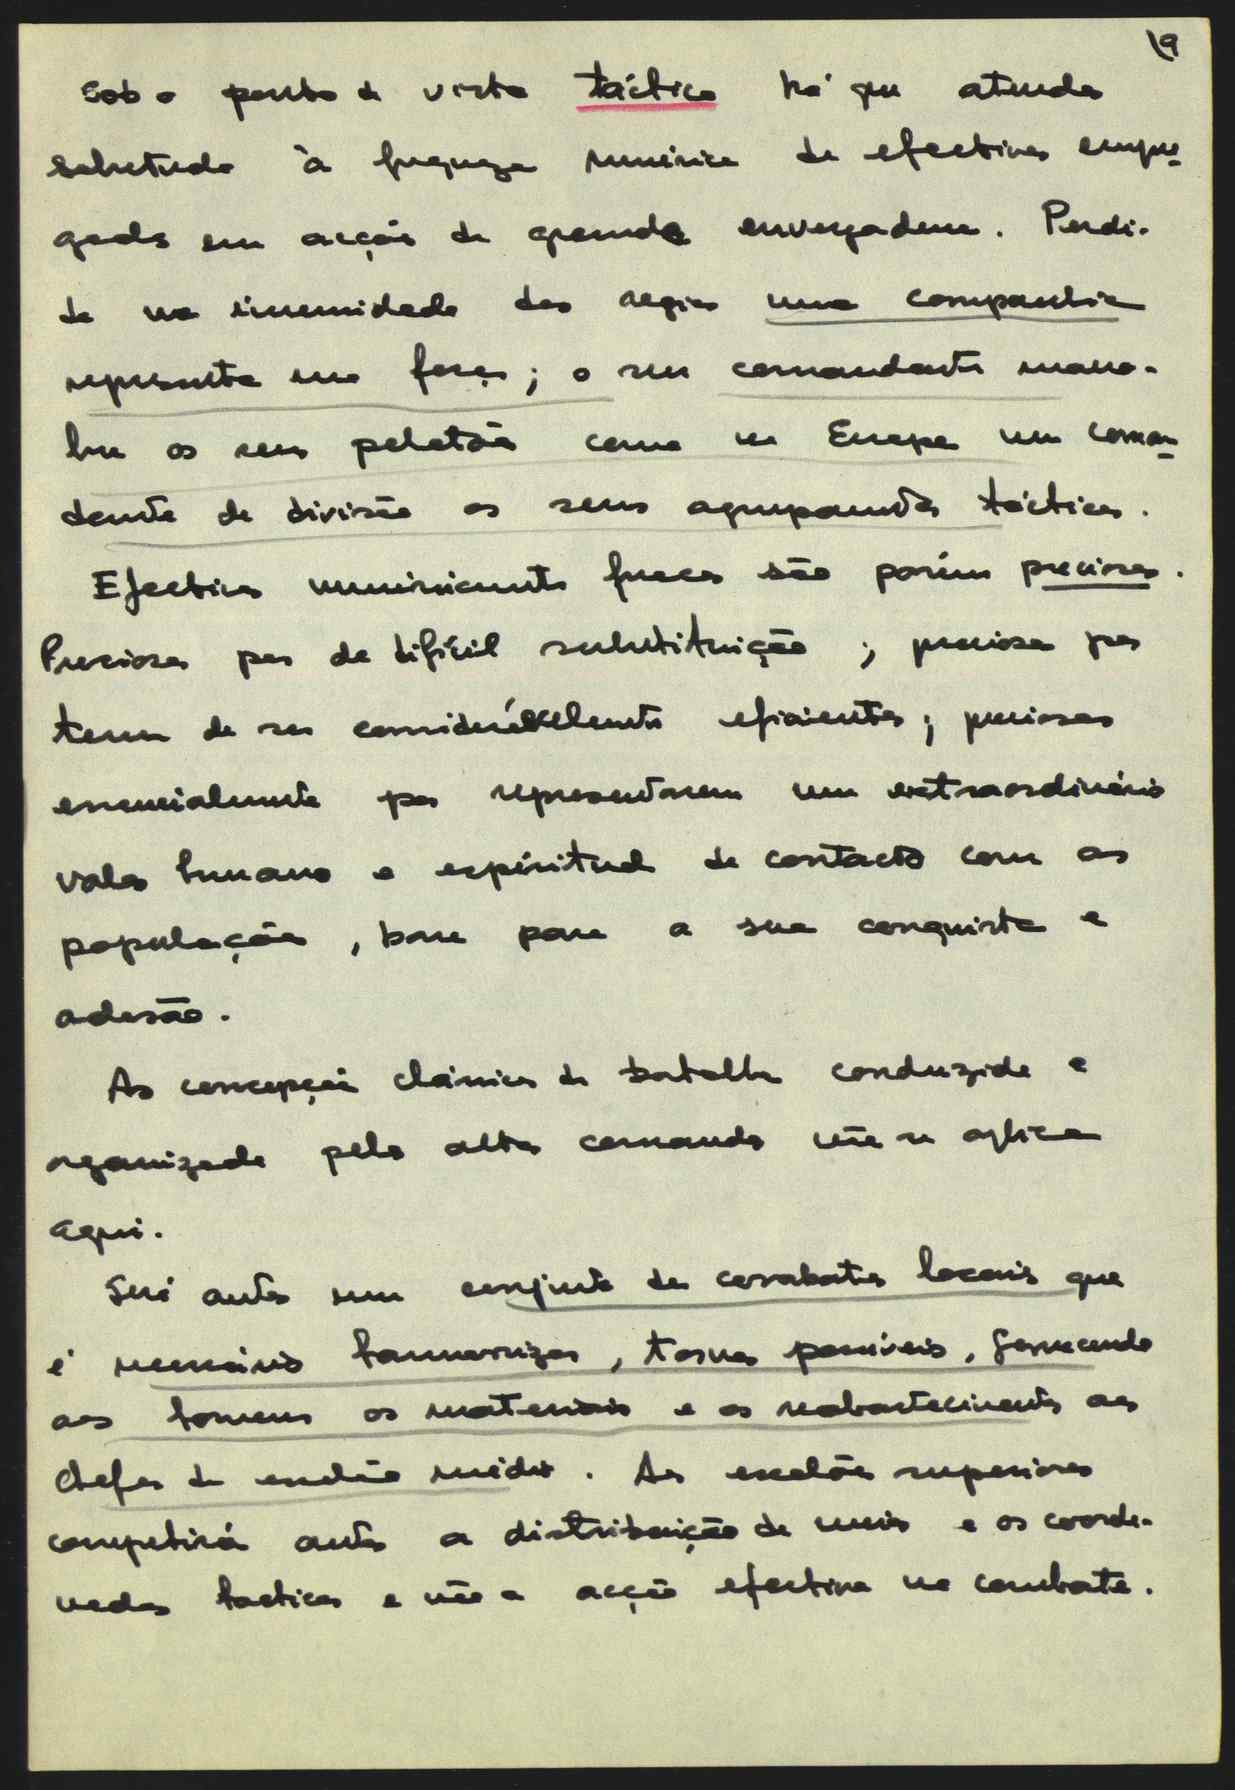 19
Sob o ponto de vista táctico há que atender
sobretudo à fraqueza numérica de efectivos empre-
gados em acções de grande envergadura. Perdi-
da na imensidade das regiões uma companhia
representa uma força; o seu comandante mano-
bra os seus pelotões como na Europa um coman-
dante de divisão os seus agrupamentos tácticos.
Efectivos numericamente fracos são porém preciosos.
Preciosos por de difícil substituição; preciosos por
terem de ser consideràvelmente eficientes; preciosos
essencialmente por representarem um extraordinário
valor humano e espiritual de contacto com as
populações, base para a sua conquista e
adesão.
As concepções clássicas de batalha conduzida e
organizada pelo alto comando não se aplica
aqui.
Será antes um conjunto de combates locais que
é necessário harmonizar, tornar possíveis, fornecendo
aos homens os materiais e os reabastecimentos aos
chefes de escalão médio. Aos escalões superiores
competirá antes a distribuição de meios e os coorde-
nadas tacticas e não a acção efectiva no combate.